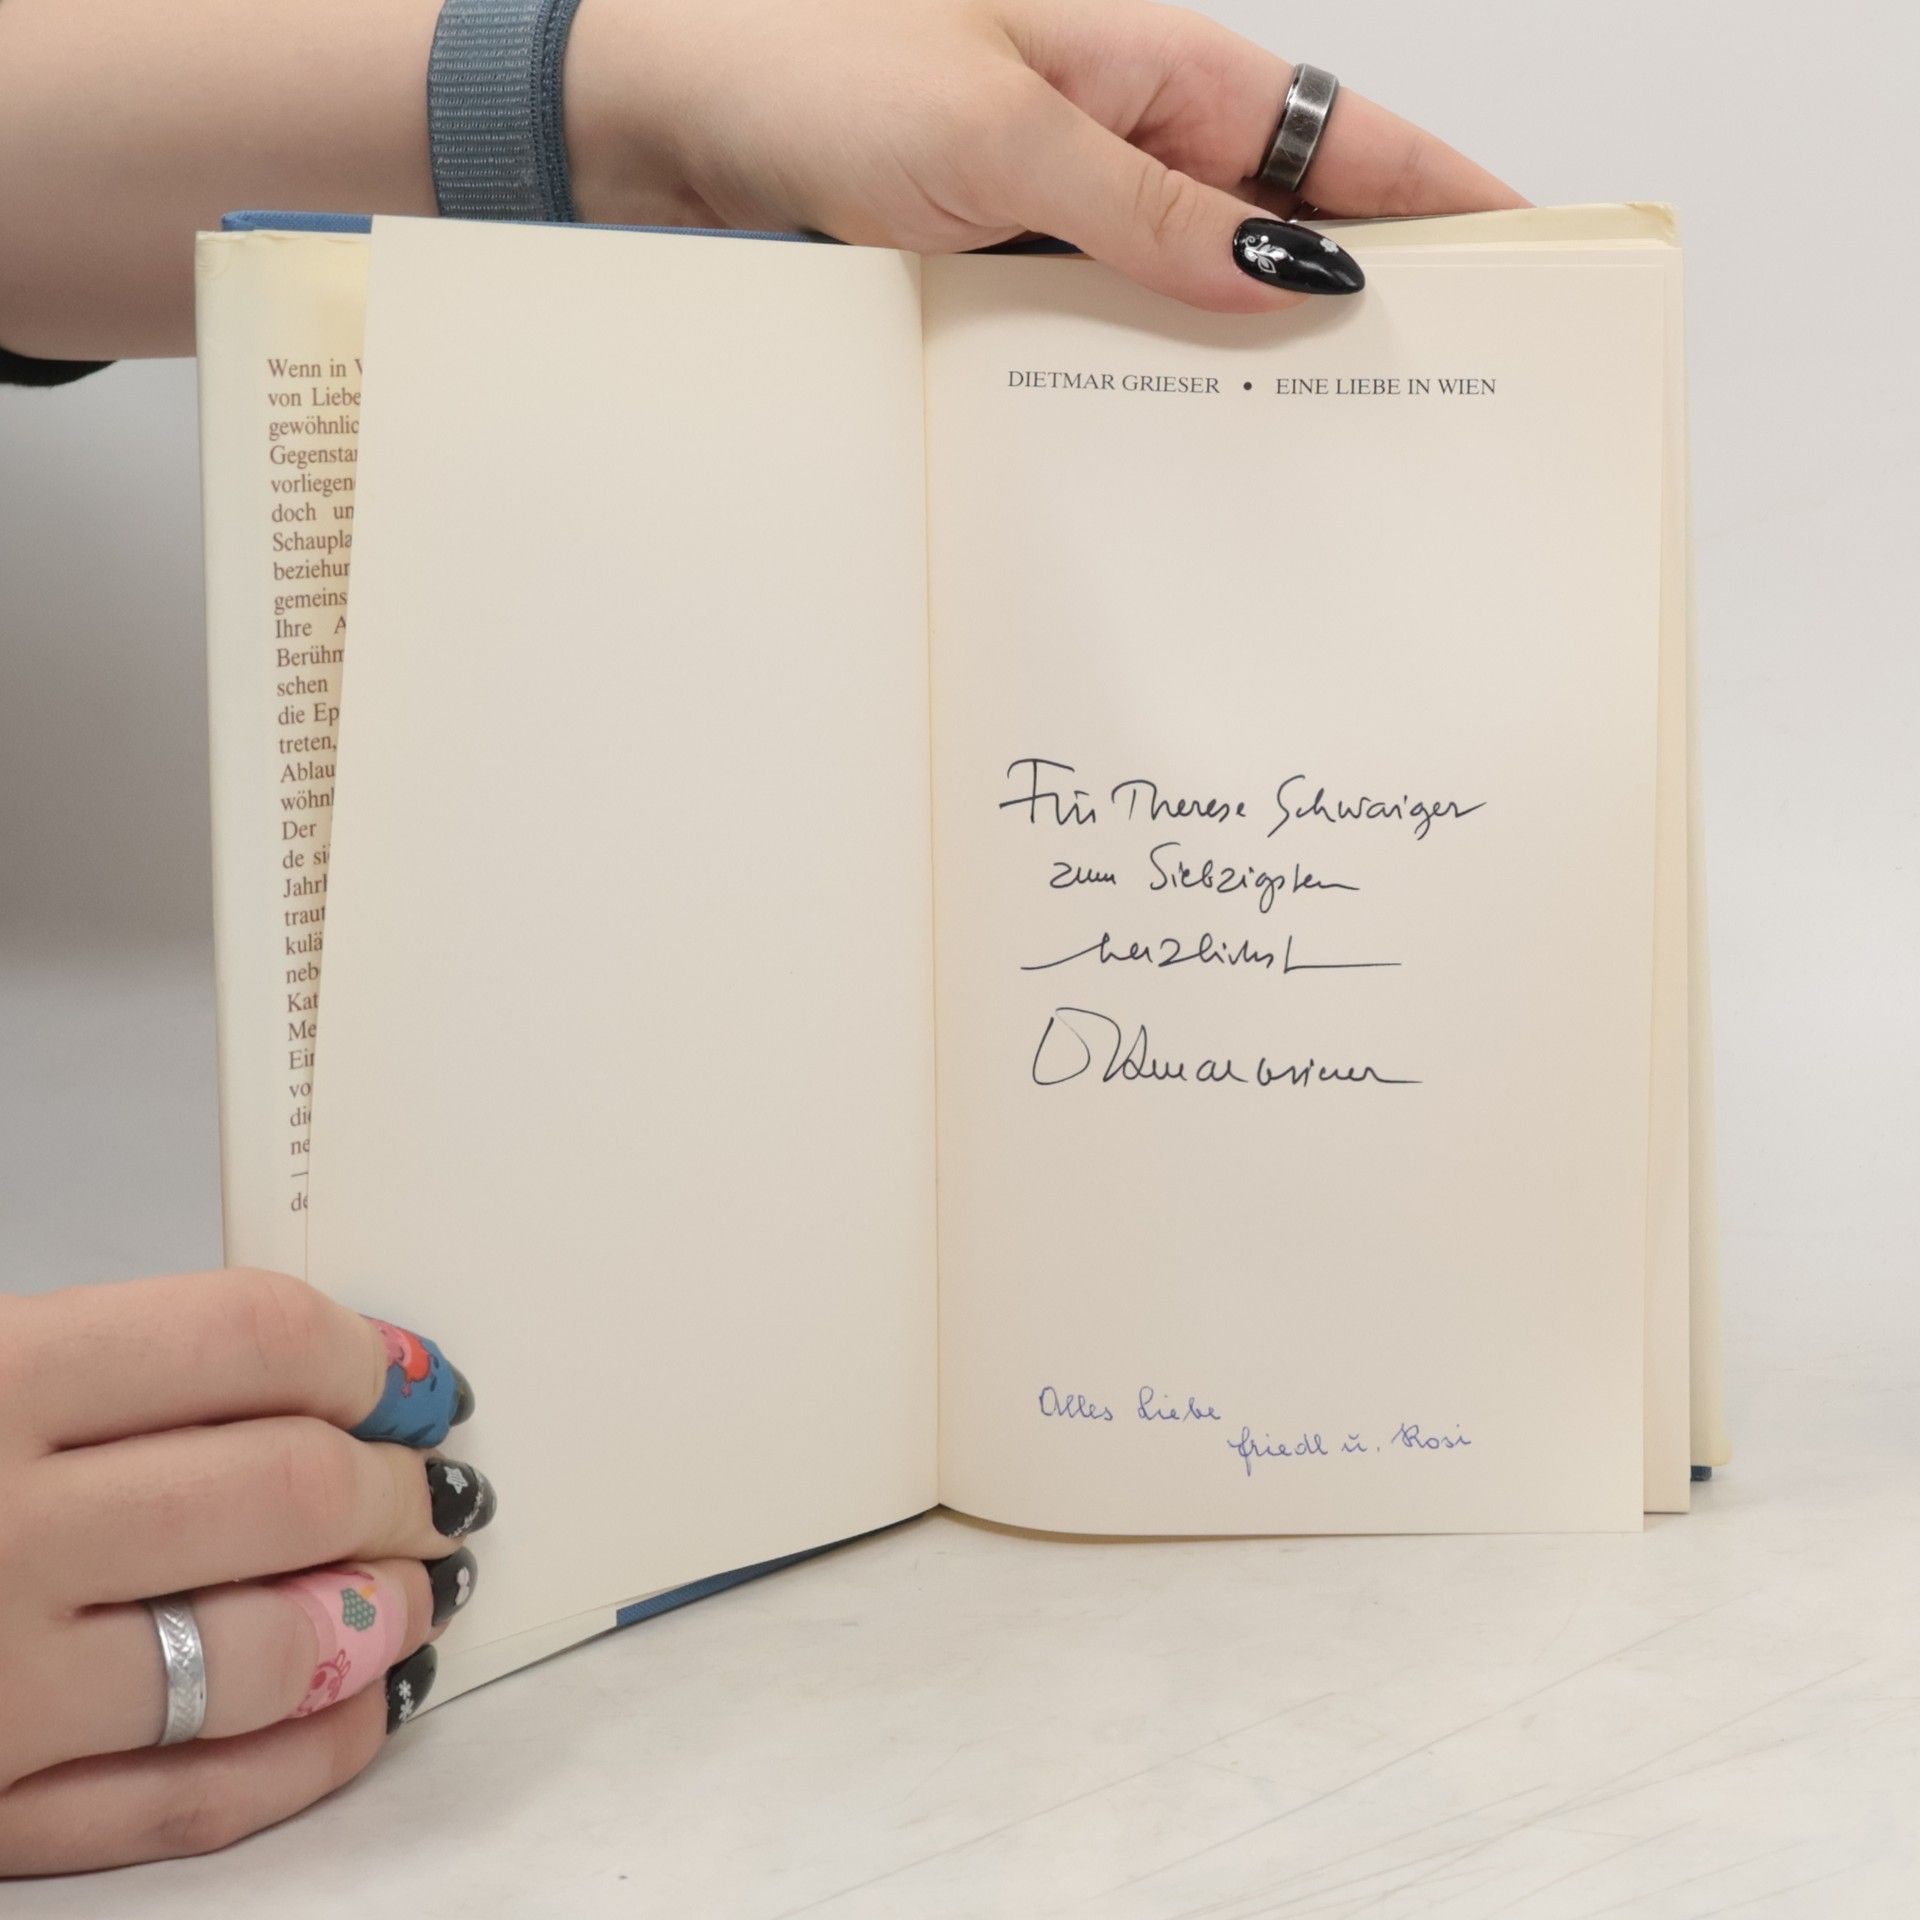 Wenn in
von Liebe
gewöhnlic
Gegensta
vorliegen
doch un
Schaupla
beziehun
gemeins
Ihre A
Berühm
schen
die Ep
treten,
Ablau
wöhnl
Der
de si
Jahrh
traut
kulä
neb
Kat
Me
Ein
vo
die
ne
de
DIETMAR GRIESER • EINE LIEBE IN WIEN
Für Therese Schwaiger
zum Siebzigsten
herzlichst
Dietmar Grieser
Alles Liebe
Friedl u. Rosi